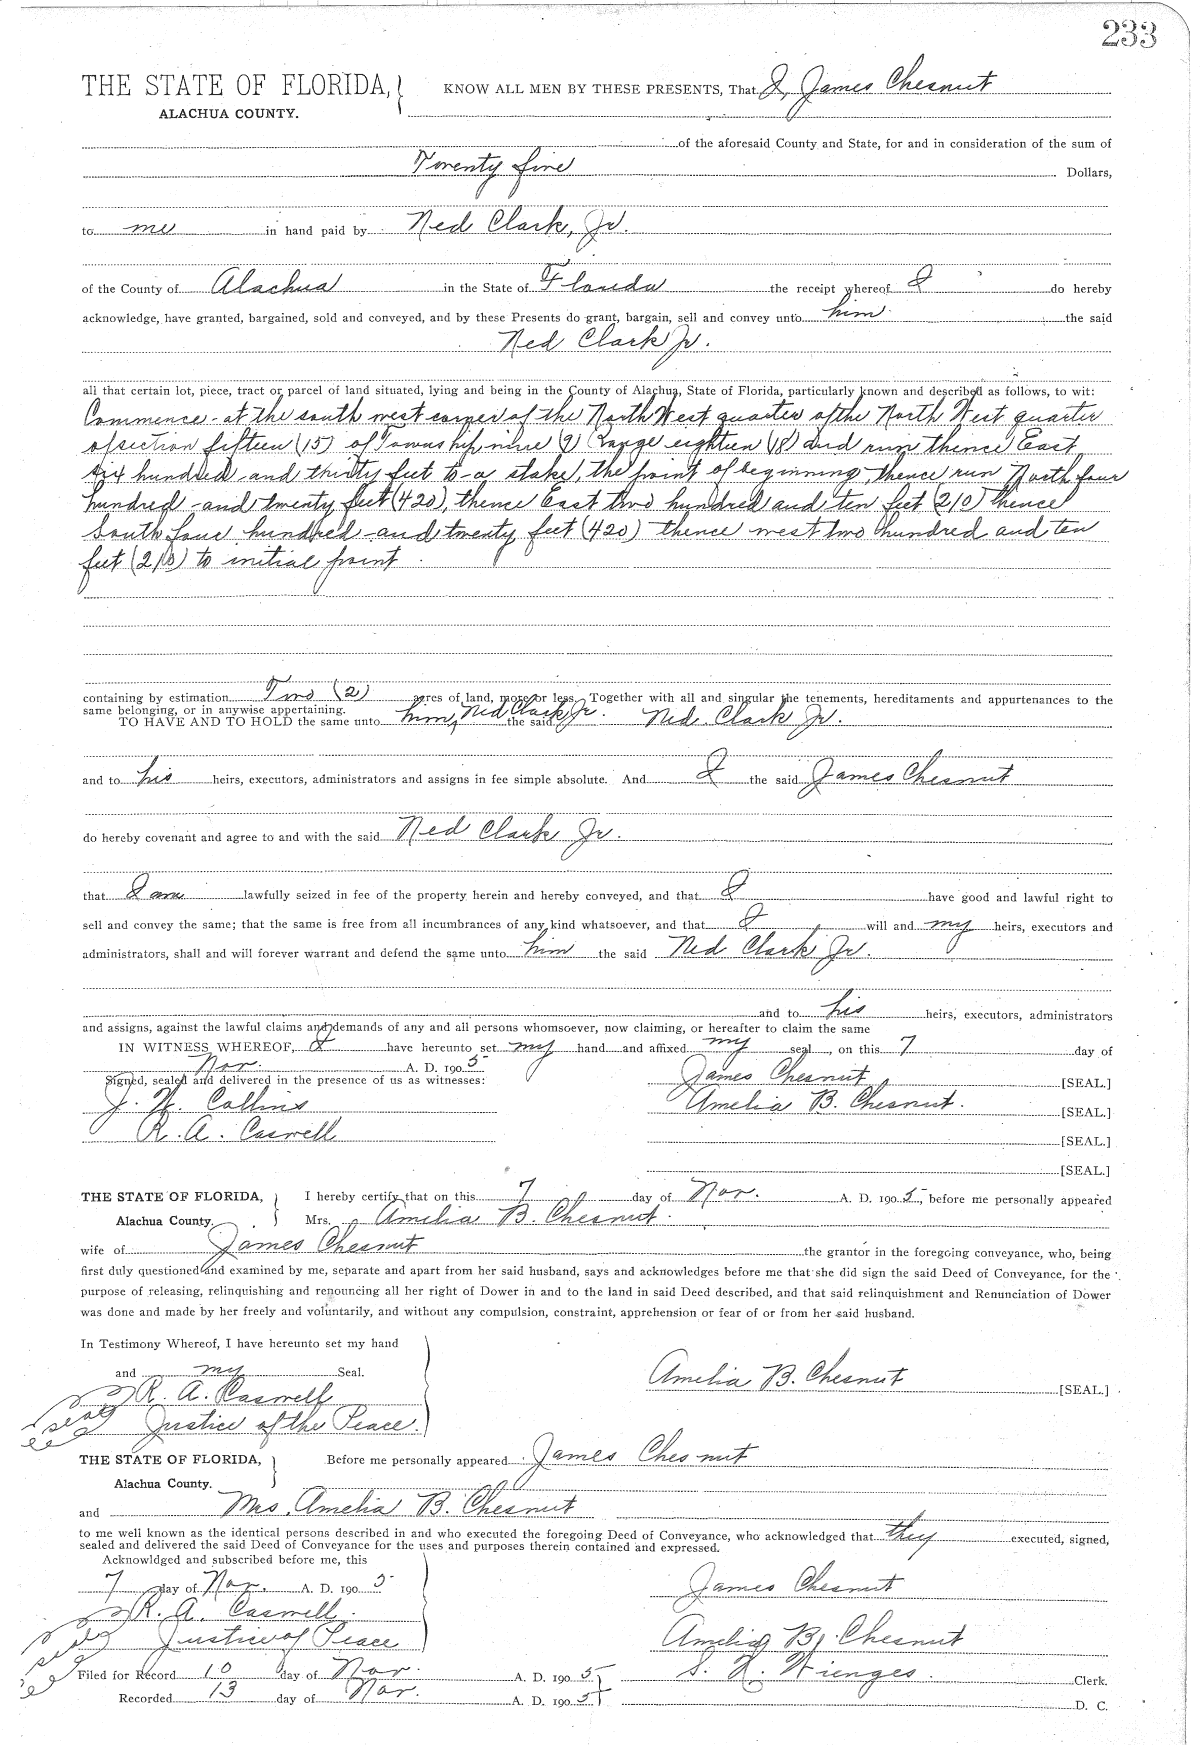 233
THE STATE OF FLORIDA, KNOW ALL MEN BY THESE PRESENTS, That I, James Chesnut
ALACHUA COUNTY.
of the aforesaid County and State, for and in consideration of the sum of
Twenty five Dollars,
to me in hand paid by Ned Clark, Jr.
of the County of Alachua in the State of Florida the receipt whereof I do hereby
acknowledge, have granted, bargained, sold and conveyed, and by these Presents do grant, bargain, sell and convey unto him the said
Ned Clark Jr.
all that certain lot, piece, tract or parcel of land situated, lying and being in the County of Alachua, State of Florida, particularly known and described as follows, to wit:
Commence at the south west corner of the North West quarter of the North West quarter
of section fifteen (15) of Township nine (9) Range eighteen (18) and run thence East
six hundred and thirty feet to a stake, the point of beginning, thence run North four
hundred and twenty feet (420), thence East two hundred and ten feet (210) thence
South four hundred and twenty feet (420) thence west two hundred and ten
feet (210) to initial point.
containing by estimation Two (2) acres of land, more or less. Together with all and singular the tenements, hereditaments and appurtenances to the
same belonging, or in anywise appertaining.
TO HAVE AND TO HOLD the same unto him, Ned Clark Jr. the said Ned Clark Jr.
and to his heirs, executors, administrators and assigns in fee simple absolute. And I the said James Chesnut
do hereby covenant and agree to and with the said Ned Clark Jr.
that I am lawfully seized in fee of the property herein and hereby conveyed, and that I have good and lawful right to
sell and convey the same; that the same is free from all incumbrances of any kind whatsoever, and that I will and my heirs, executors and
administrators, shall and will forever warrant and defend the same unto him the said Ned Clark Jr.
and to his heirs, executors, administrators
and assigns, against the lawful claims and demands of any and all persons whomsoever, now claiming, or hereafter to claim the same
IN WITNESS WHEREOF, I have hereunto set my hand and affixed my seal, on this 7 day of
Nov. A. D. 1905
Signed, sealed and delivered in the presence of us as witnesses: James Chesnut [SEAL.]
J. H. Collins Amelia B. Chesnut. [SEAL.]
R. A. Caswell [SEAL.]
[SEAL.]
THE STATE OF FLORIDA, I hereby certify that on this 7 day of Nov. A. D. 1905, before me personally appeared
Alachua County. Mrs. Amelia B. Chesnut.
wife of James Chesnut the grantor in the foregoing conveyance, who, being
first duly questioned and examined by me, separate and apart from her said husband, says and acknowledges before me that she did sign the said Deed of Conveyance, for the
purpose of releasing, relinquishing and renouncing all her right of Dower in and to the land in said Deed described, and that said relinquishment and Renunciation of Dower
was done and made by her freely and voluntarily, and without any compulsion, constraint, apprehension or fear of or from her said husband.
In Testimony Whereof, I have hereunto set my hand
and my Seal. Amelia B. Chesnut [SEAL.]
R. A. Caswell
seal Justice of the Peace.
THE STATE OF FLORIDA, Before me personally appeared James Chesnut
Alachua County.
and Mrs. Amelia B. Chesnut
to me well known as the identical persons described in and who executed the foregoing Deed of Conveyance, who acknowledged that they executed, signed,
sealed and delivered the said Deed of Conveyance for the uses and purposes therein contained and expressed.
Acknowldged and subscribed before me, this
7 day of Nov. A. D. 1905 James Chesnut
R. A. Caswell.
seal Justice of Peace Amelia B. Chesnut
Filed for Record 10 day of Nov. A. D. 1905 S. H. Wienges. Clerk.
Recorded 13 day of Nov. A. D. 1905 D. C.